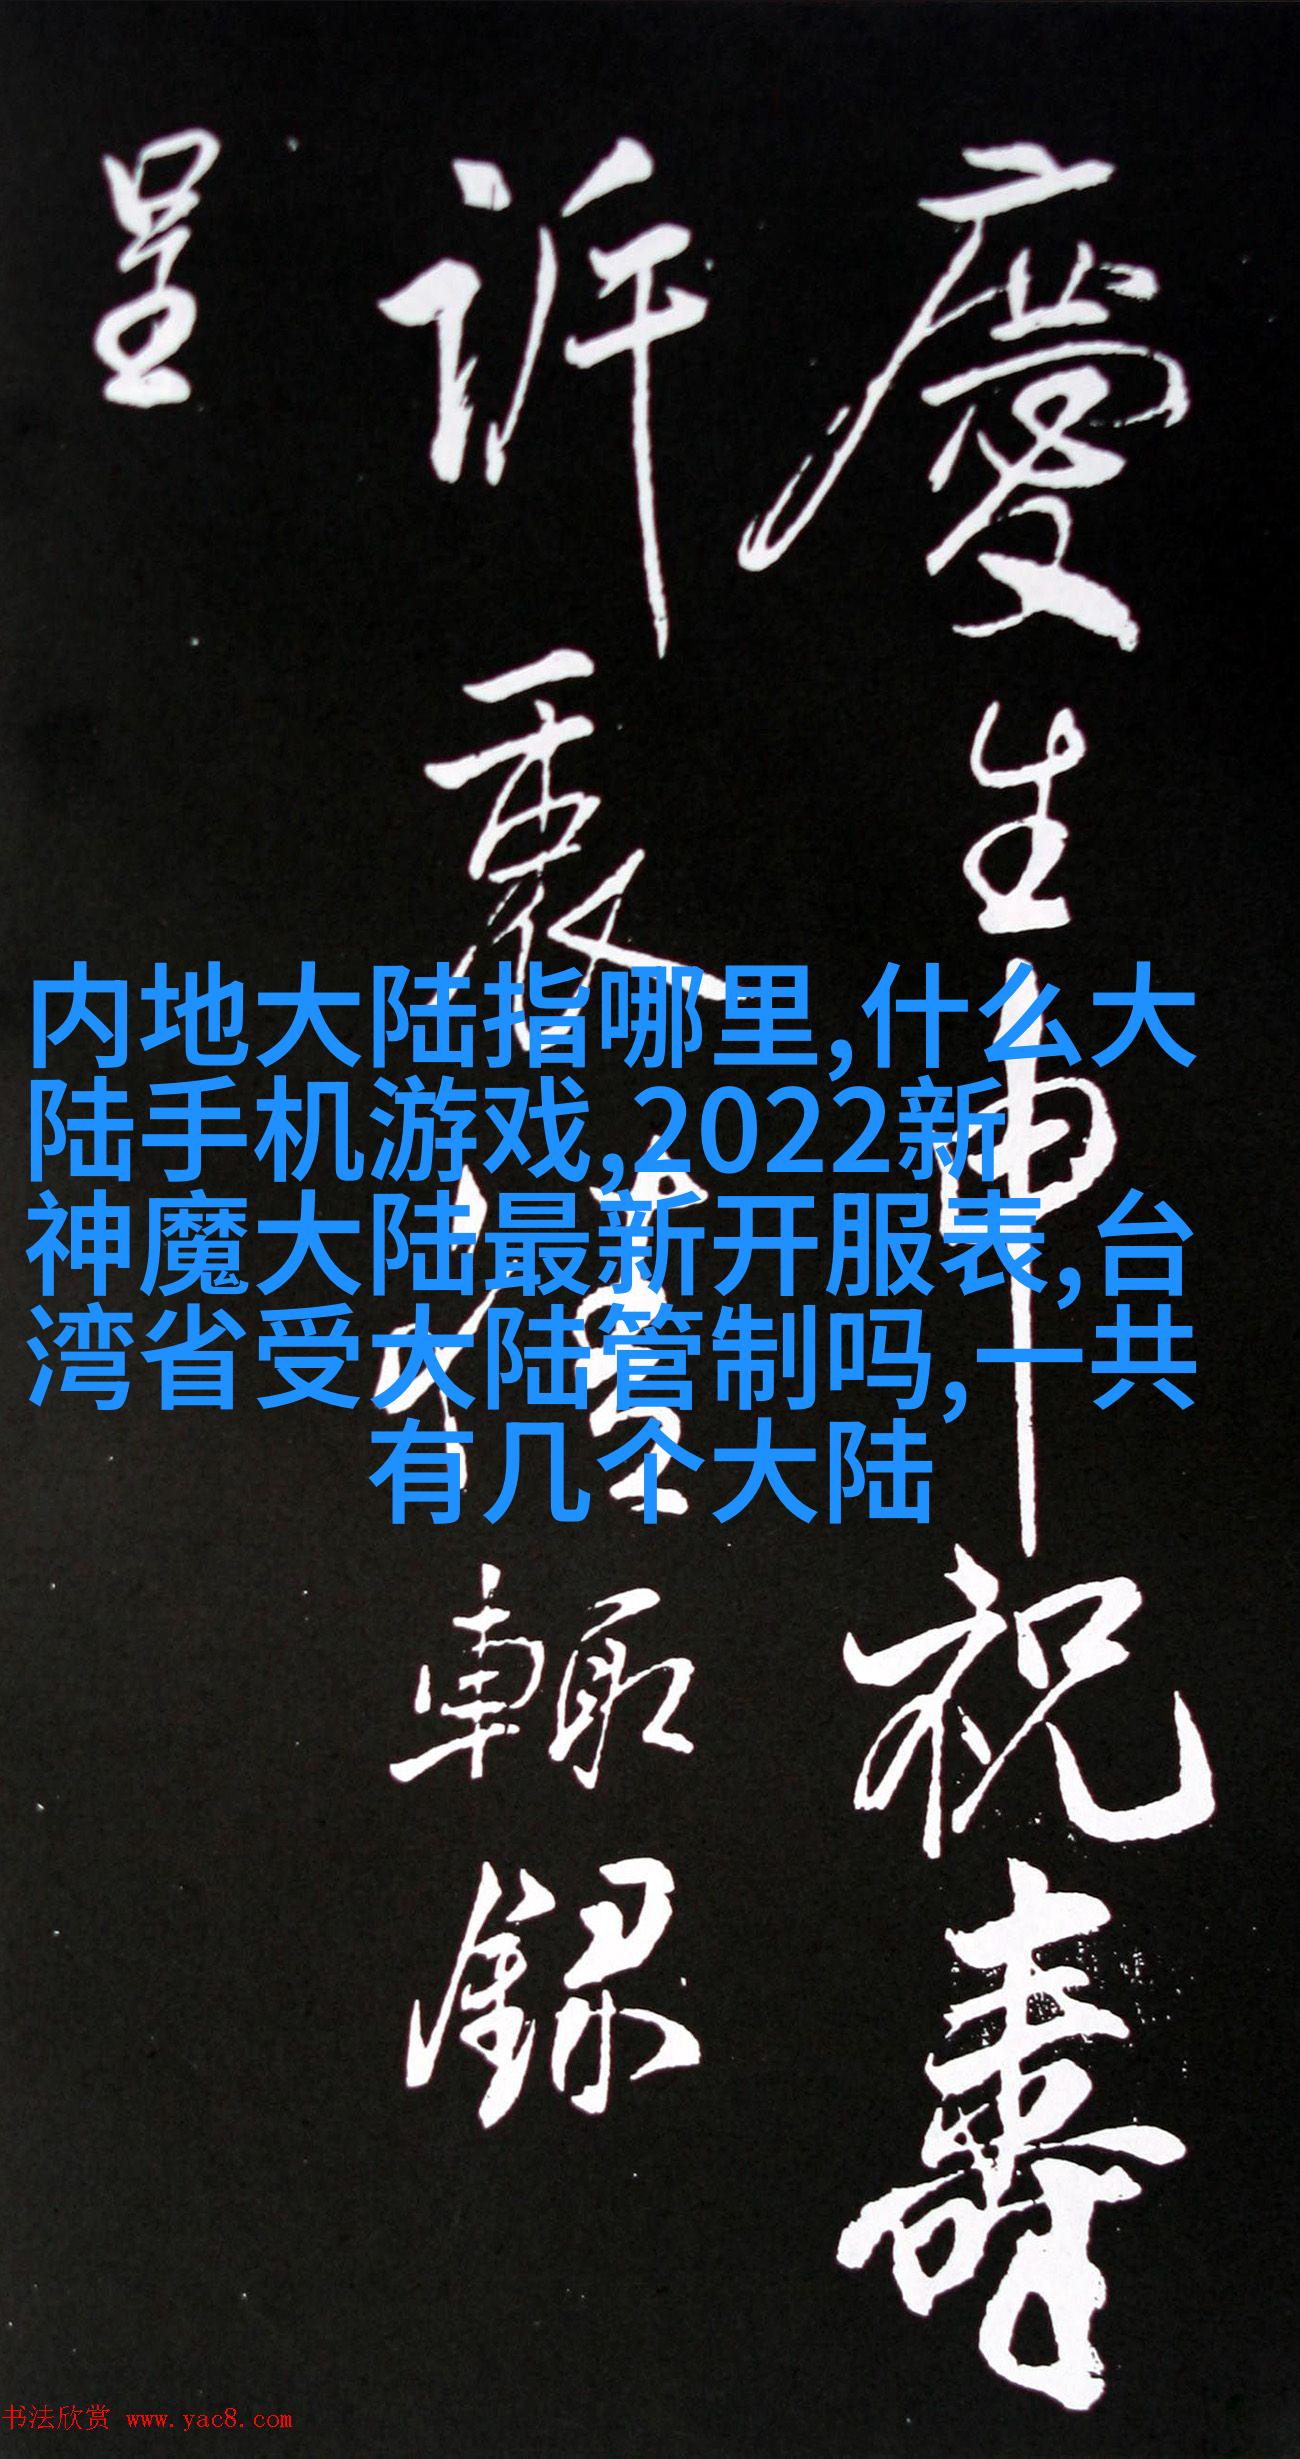 慶生申祝壽
訴衷情輙錄
呈
内地大陆指哪里,什么大
陆手机游戏,2022新
神魔大陆最新开服表,台
湾省受大陆管制吗,一共
有几个大陆
书法欣赏 www.yac8.com